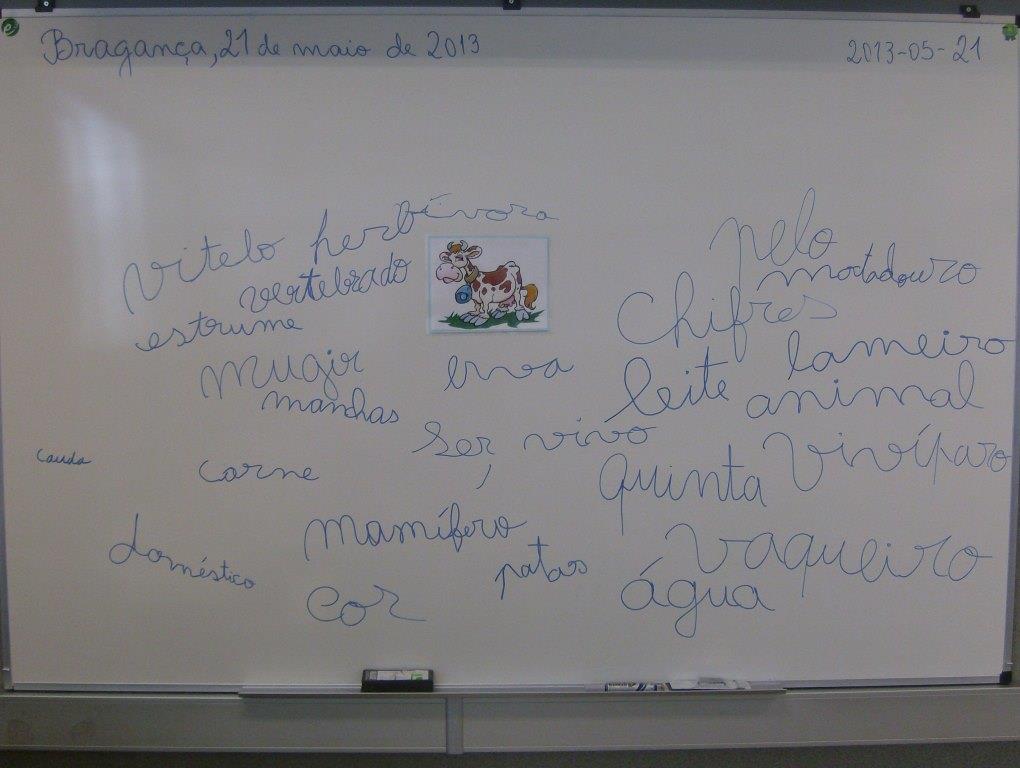 Bragança, 21 de maio de 2013
2013-05-21
vitelo
herbívora
pelo
vertebrado
mortadouro
estrume
chifres
mugir
erva
lameiro
manchas
leite
animal
ser vivo
cauda
carne
quinta
vivíparo
mamífero
vaqueiro
doméstico
patas
cor
água